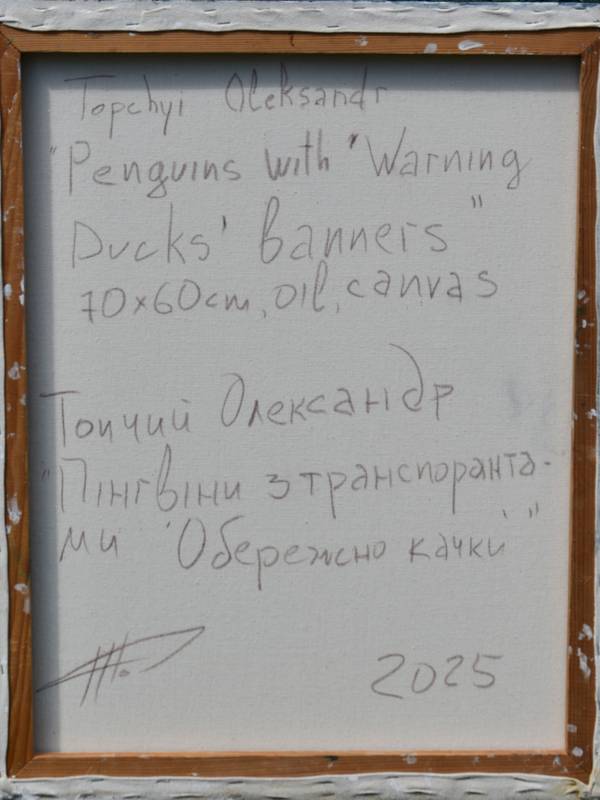 Topchyi Oleksandr
"Penguins with "Warning
Ducks' banners"
70x60cm, oil, canvas
Топчий Олександр
"Пінгвіни з транспоранта-
ми 'Обережно качки'"
2025